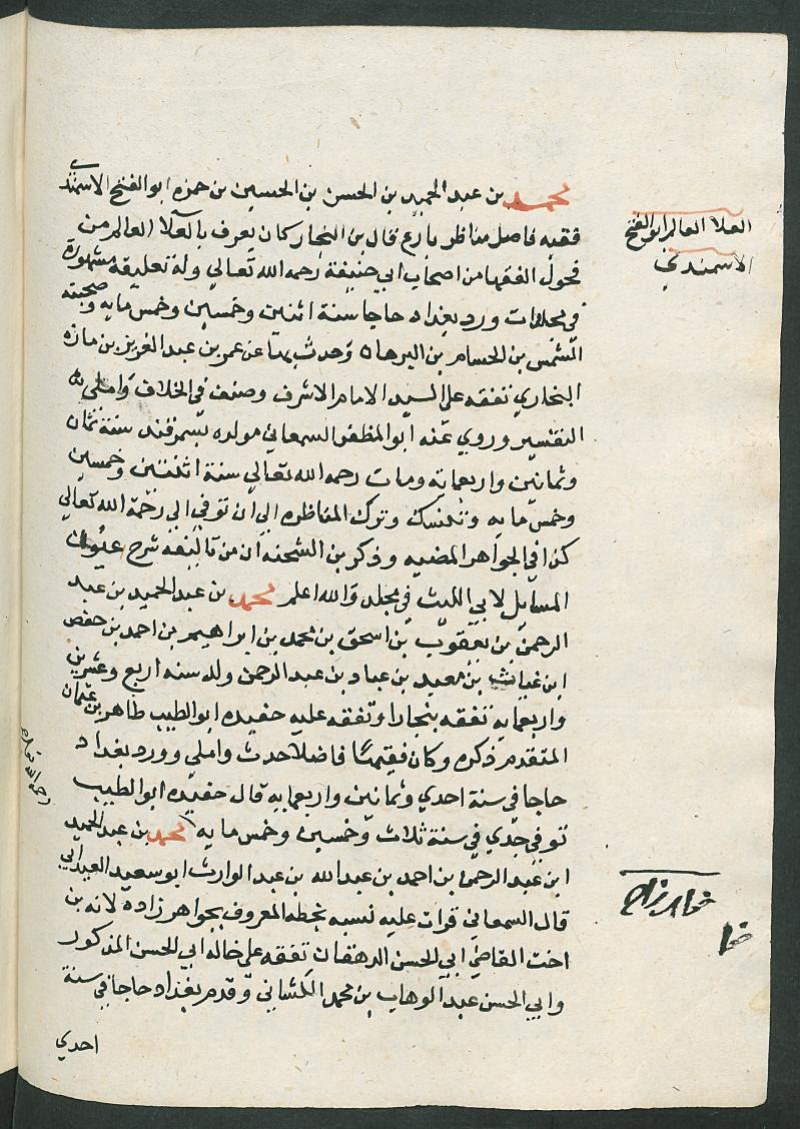 محمد بن عبد الحميد بن الحسن بن الحسين بن حمزه ابو الفتح الاسمندي
فقيه فاضل مناظر بارع قال بن النجار كان يعرف بالعلا العالم من
فحول الفقها من اصحاب ابي حنيفة رحمه الله تعالي وله تعليقة مشهورة
في مجلدات ورد بغداد حاجا سنة اثنين وخمسين وخمس مايه وصحبته
الشمس بن الحسام بن البرهان وحدث بها عن عمر بن عبد العزيز بن مازه
البخاري تفقه علي السيد الامام الاشرف وصنف في الخلاف واملي
التفسير وروي عنه ابو المظفر السمعاني مولده بسمرقند سنة ثمان
وثمانين واربعمايه ومات رحمه الله تعالي سنة اثنتين وخمسين
وخمس مايه وتنسك وترك المناظره الي ان توفي الي رحمة الله تعالي
كذا في الجواهر المضيه وذكر بن الشحنه ان من تاليفه شرح عيون
المسايل لابي الليث في مجلد والله اعلم محمد بن عبد الحميد بن عبد
الرحمن بن يعقوب بن اسحق بن محمد بن ابراهيم بن احمد بن حفص
ابن غياث بن معبد بن عباد بن عبد الرحمن ولد سنه اربع وعشرين
واربعمايه تفقه ببخارا وتفقه عليه حفيده ابو الطيب طاهر بن عثمان
المتقدم ذكره وكان فقيها فاضلا حدث واملي وورد بغداد
حاجا في سنة احدي وثمانين واربعمايه قال حفيده ابو الطيب
توفي جدي في سنة ثلاث وخمسين وخمس مايه محمد بن عبد الحميد
ابن عبد الرحمن بن احمد بن عبد الله بن عبد الوارث ابو سعيد العبداني
قال السمعاني قرات عليه نسبه بخطه المعروف بجواهر زادة لانه بن
اخت القاضي ابي الحسن الدهقان تفقه علي خاله ابي الحسن المذكور
وابي الحسن عبد الوهاب بن محمد الكشاني وقدم بغداد حاجا في سنة
احدي
العلا العالم ابو الفتح
الاسمندي
رحمه الله تعالي
خواهر زاده